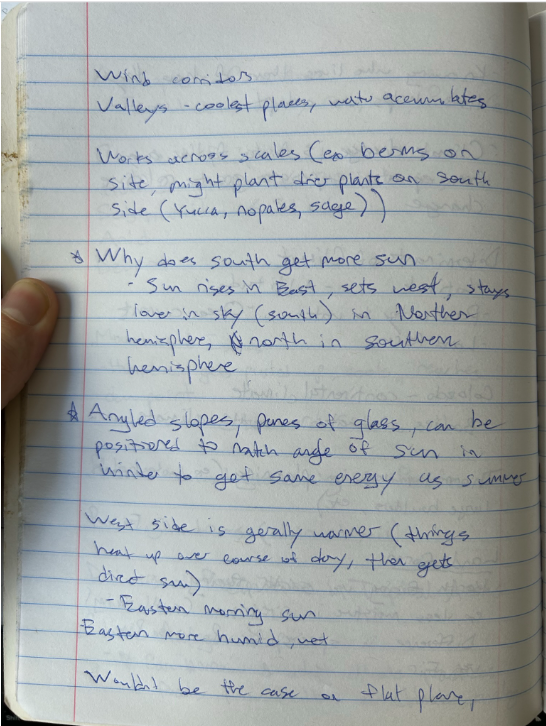 Wind corridors
Valleys - coolest places, water accumulates
Works across scales (ex berms on
site, might plant drier plants on south
side (Yucca, nopales, sage))
* Why does south get more sun
- Sun rises in East, sets west, stays
lower in sky (south) in Northern
hemisphere, north in southern
hemisphere
* Angled slopes, panes of glass, can be
positioned to match angle of sun in
winter to get same energy as summer
West side is gerally warmer (things
heat up over course of day, then gets
direct sun)
- Eastern morning sun
Eastern more humid, wet
Wouldnt be the case on flat plane,